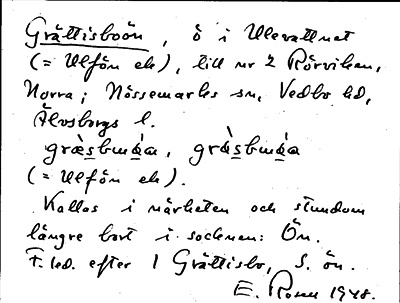 Grättisboön, ö i Ulevattnet
(= Ulfön ek), till nr 2 Rörviken,
Norra; Nössemarks sn, Vedbo hd,
Älvsborgs l.
(= Ulfön ek).
Kallas i närheten och stundom
längre bort i socknen: Ön.
F. led. efter 1 Grättisbo, S. ön.
E. Rosell 1948.